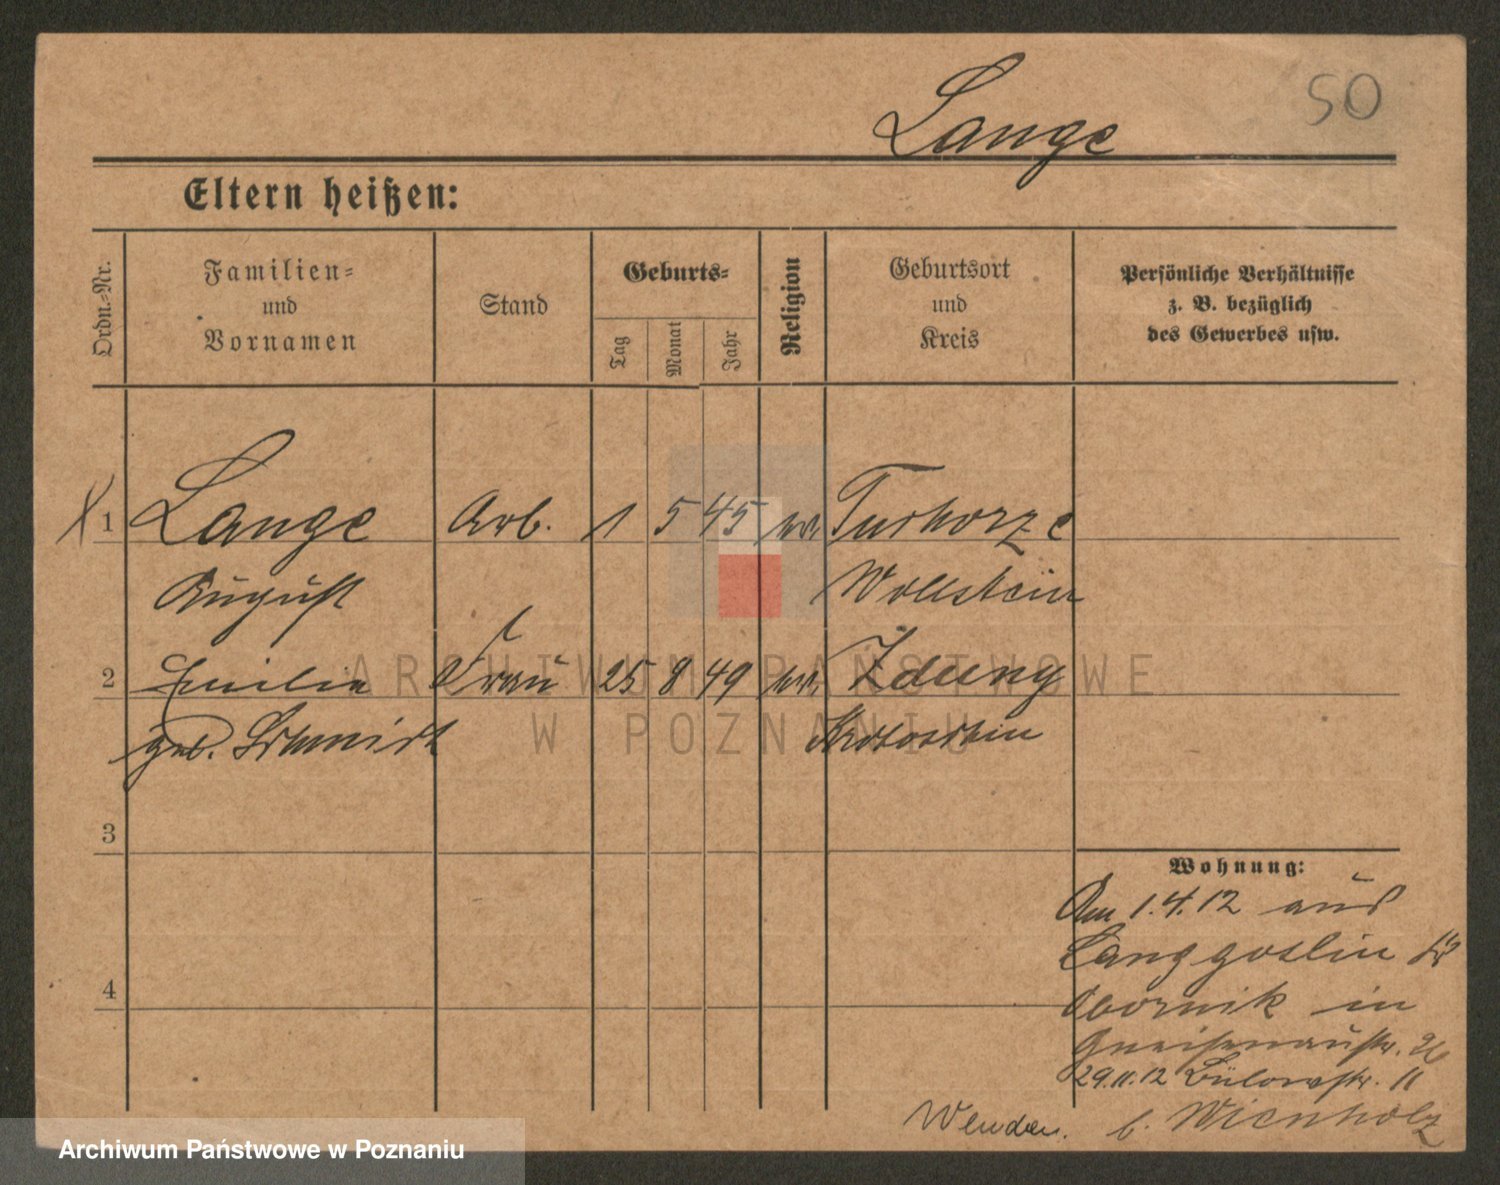 Lange
50
Eltern heißen:
Ordn.-Nr.
Familien-
und
Vornamen
Stand
Geburts-
Tag
Monat
Jahr
Religion
Geburtsort
und
Kreis
Persönliche Verhältnisse
z. B. bezüglich
des Gewerbes usw.
1 Lange Arb. 1 5 45 ev. Tuchorze
August Wollstein
2 Emilie Frau 25 8 49 ev. Zduny
geb. Schmidt Krotoschin
3
4
Wohnung:
Am 1.4.12 aus
Langgoslin Kr
Obornik in
Gneisenaustr. 26
29.11.12 Bülowstr. 11
b. Wienholz
Wenden.
ARCHIWUM PAŃSTWOWE
W POZNANIU
Archiwum Państwowe w Poznaniu